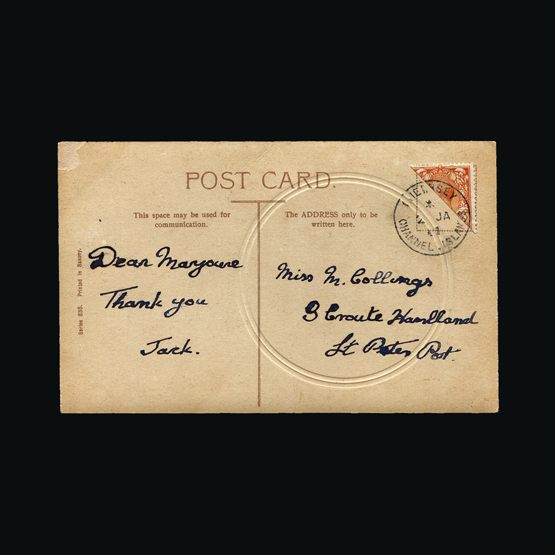 POST CARD.
This space may be used for
communication.
The ADDRESS only to be
written here.
GUERNSEY
JA
41
CHANNEL ISLANDS
Dear Marjorie
Thank you
Jack.
Miss M. Collings
3 Croute Havilland
St Peter Port.
Printed in Saxony.